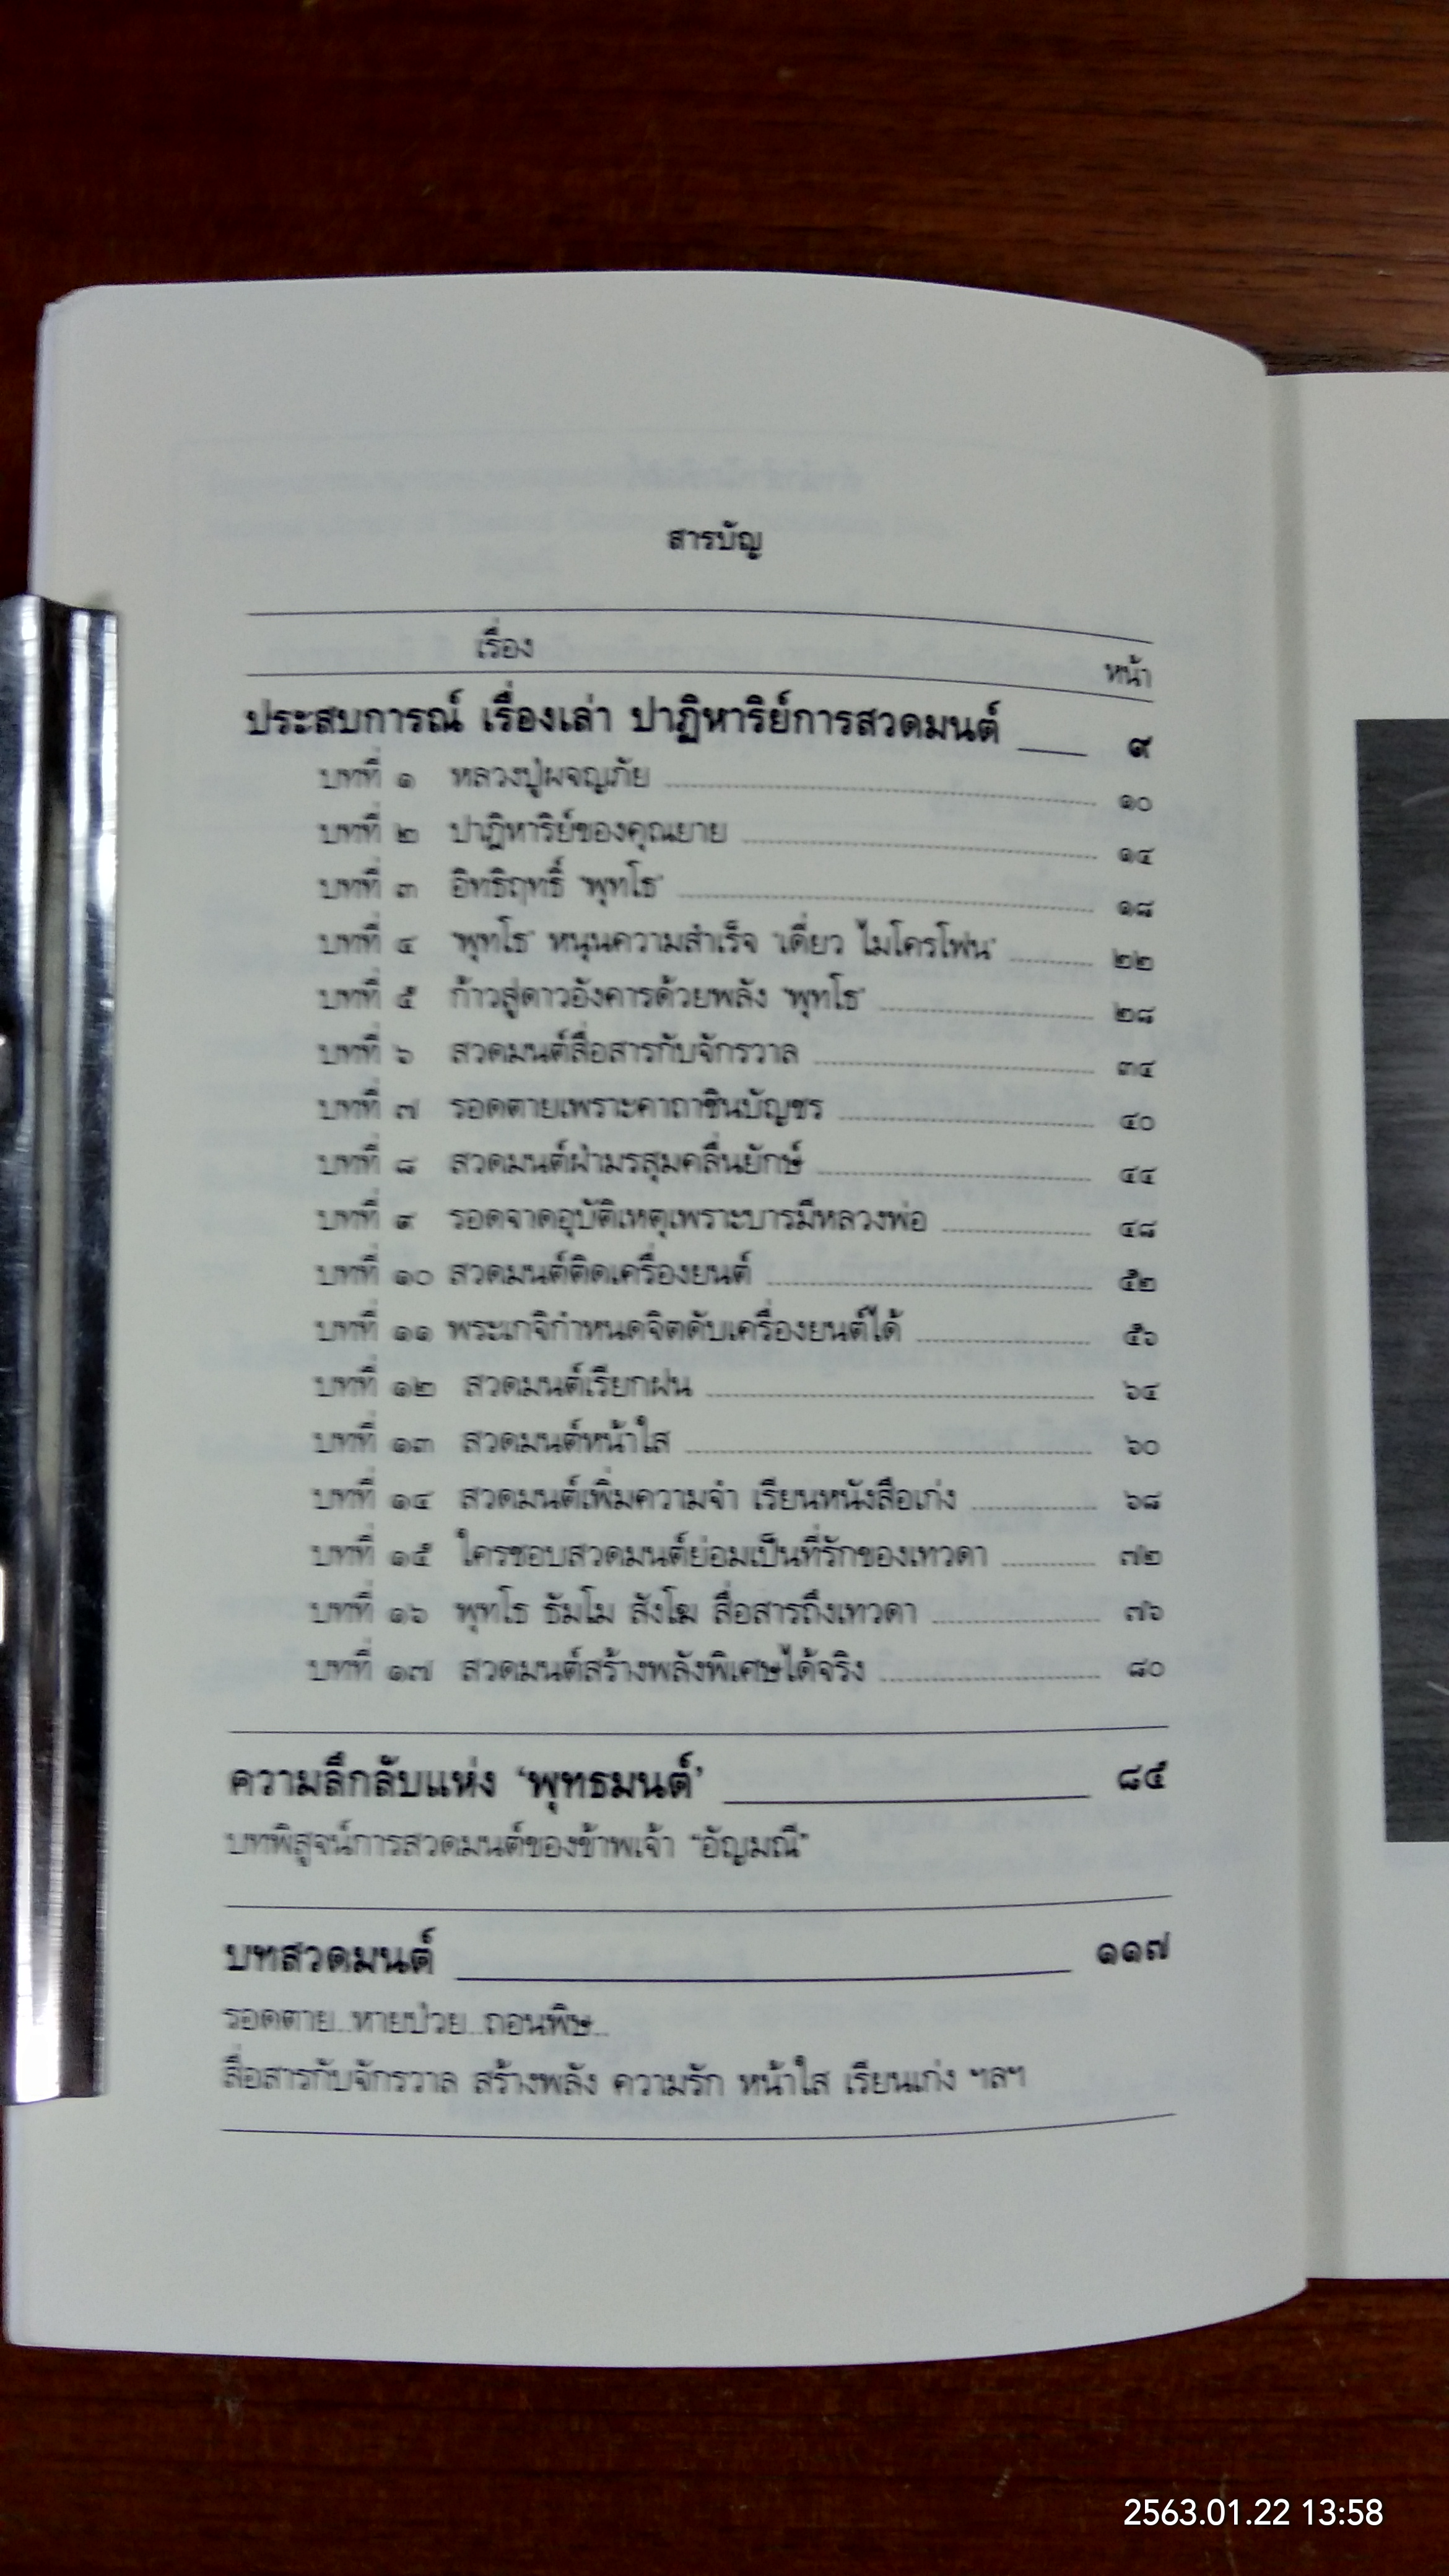 สารบัญ
เรื่อง หน้า
ประสบการณ์ เรื่องเล่า ปาฏิหาริย์การสวดมนต์ ๙
บทที่ ๑ หลวงปู่ผจญภัย ๑๐
บทที่ ๒ ปาฏิหาริย์ของคุณยาย ๑๔
บทที่ ๓ อิทธิฤทธิ์ 'พุทโธ' ๑๘
บทที่ ๔ 'พุทโธ' หนุนความสำเร็จ 'เดี่ยว ไมโครโฟน' ๒๒
บทที่ ๕ ก้าวสู่ดาวอังคารด้วยพลัง 'พุทโธ' ๒๘
บทที่ ๖ สวดมนต์สื่อสารกับจักรวาล ๓๔
บทที่ ๗ รอดตายเพราะคาถาชินบัญชร ๔๐
บทที่ ๘ สวดมนต์ฝ่ามรสุมคลื่นยักษ์ ๔๔
บทที่ ๙ รอดจาดอุบัติเหตุเพราะบารมีหลวงพ่อ ๔๘
บทที่ ๑๐ สวดมนต์ติดเครื่องยนต์ ๕๒
บทที่ ๑๑ พระเกจิกำหนดจิตดับเครื่องยนต์ได้ ๕๖
บทที่ ๑๒ สวดมนต์เรียกฝน ๖๔
บทที่ ๑๓ สวดมนต์หน้าใส ๖๐
บทที่ ๑๔ สวดมนต์เพิ่มความจำ เรียนหนังสือเก่ง ๖๘
บทที่ ๑๕ ใครชอบสวดมนต์ย่อมเป็นที่รักของเทวดา ๗๒
บทที่ ๑๖ พุทโธ ธัมโม สังโฆ สื่อสารถึงเทวดา ๗๖
บทที่ ๑๗ สวดมนต์สร้างพลังพิเศษได้จริง ๘๐
ความลึกลับแห่ง 'พุทธมนต์' ๘๕
บทพิสูจน์การสวดมนต์ของข้าพเจ้า "อัญมณี"
บทสวดมนต์ ๑๑๗
รอดตาย...หายป่วย...ถอนพิษ...
สื่อสารกับจักรวาล สร้างพลัง ความรัก หน้าใส เรียนเก่ง ฯลฯ
2563.01.22 13:58